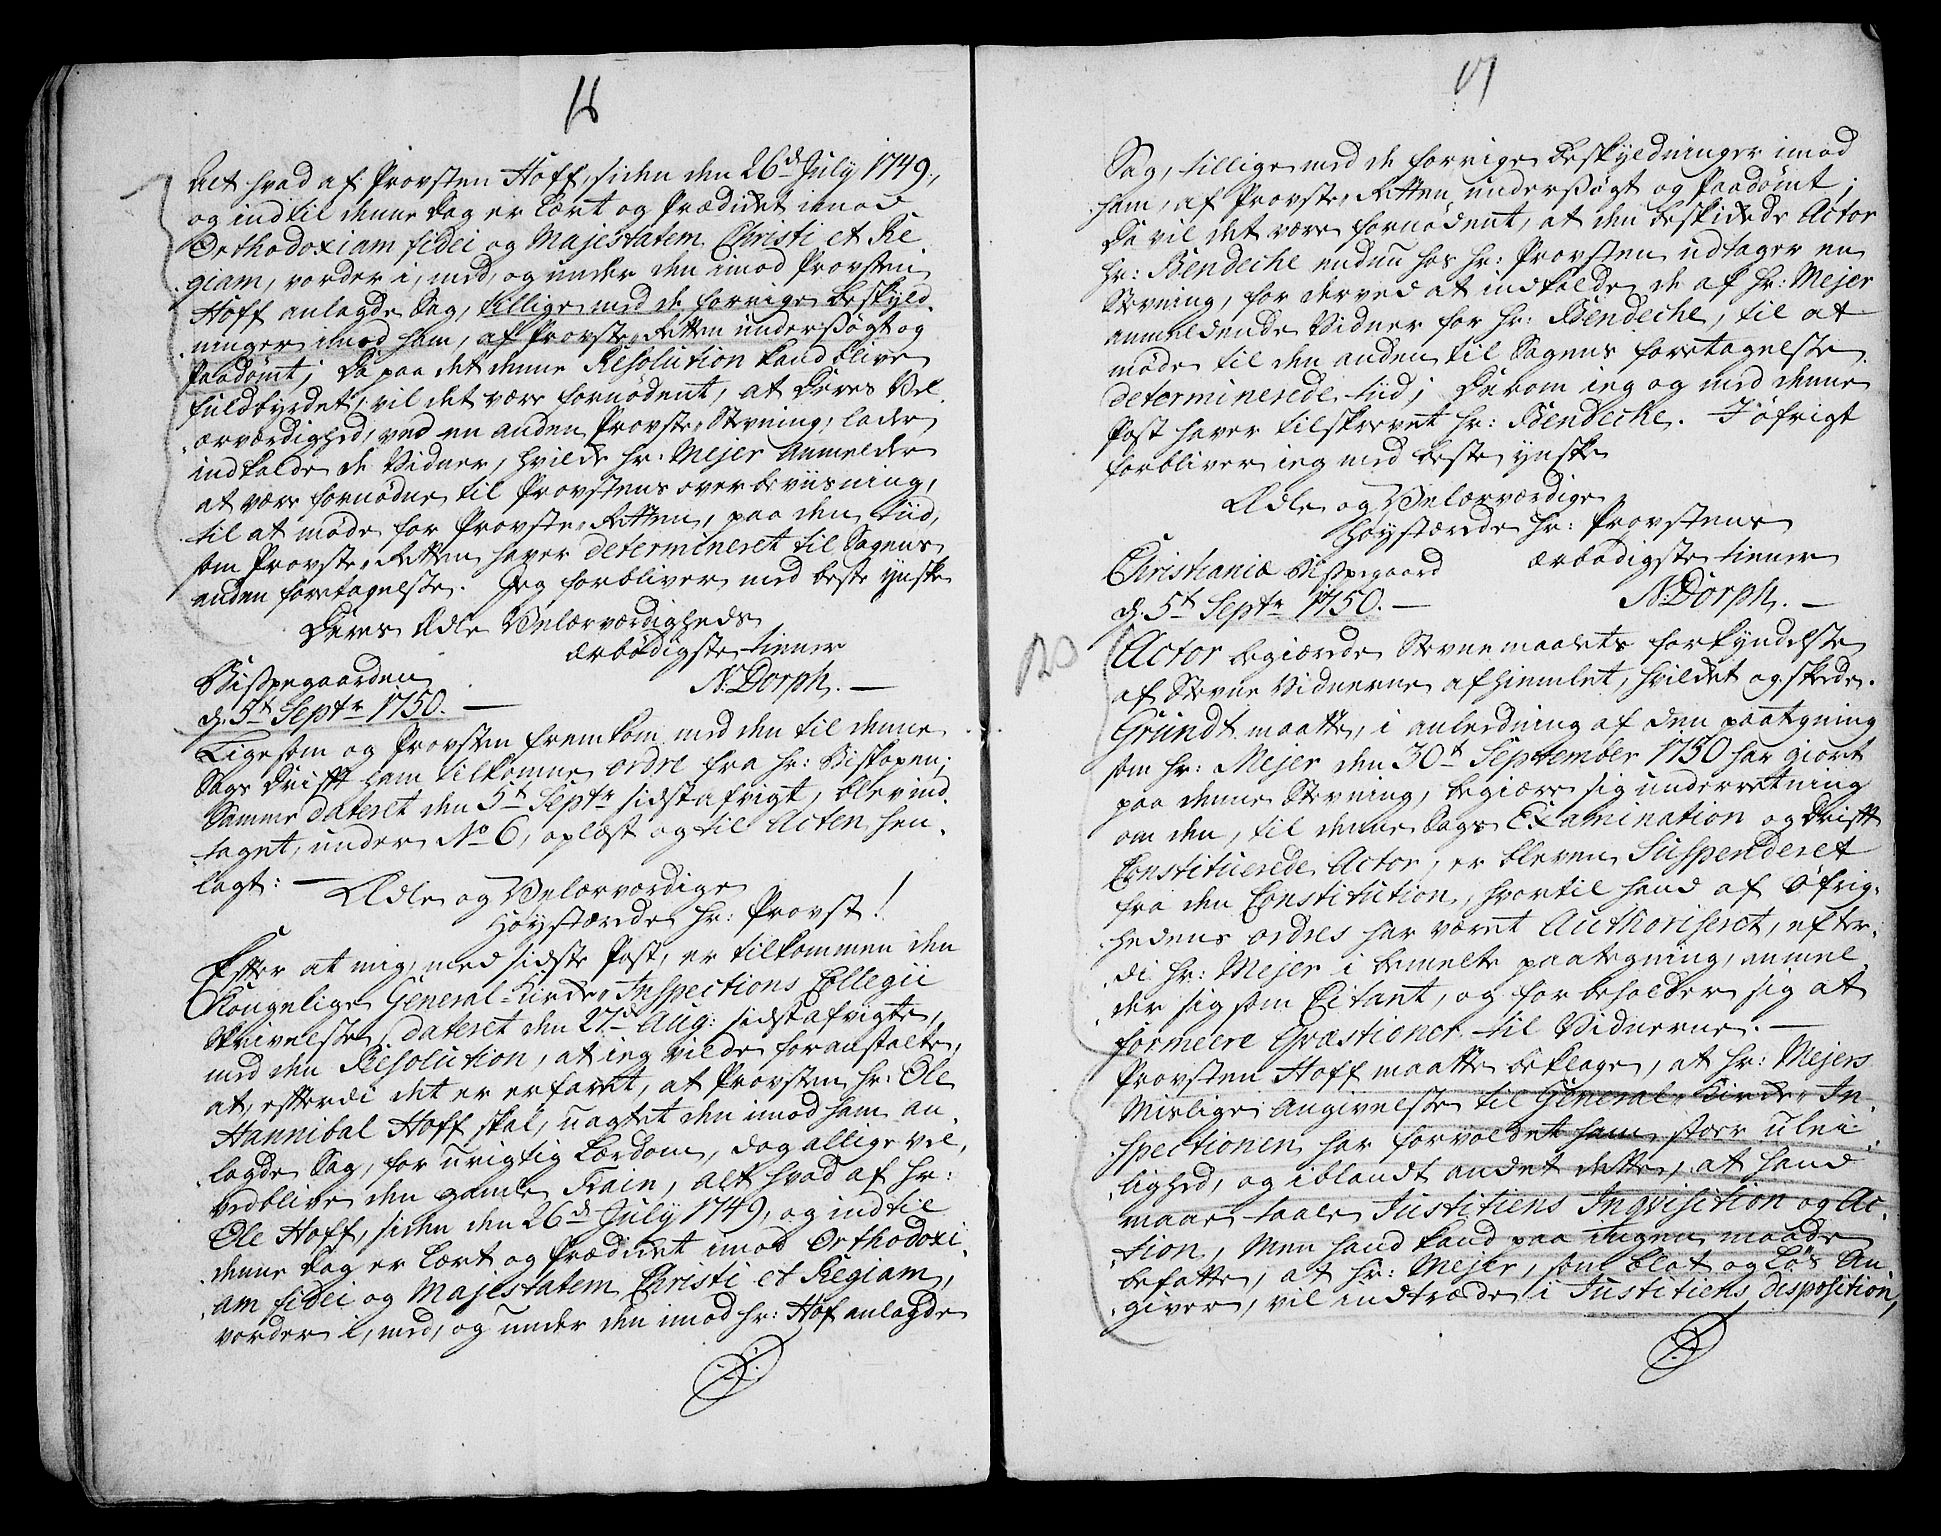 16
Alt hvad af Provsten Hoff, siden den 26d July 1749,
og indtil denne dag er Lært og Prædicket imod
Orthodoxiam fidei og Majestatem Christi et Re-
giam, vorder i, med, og under den imod Provsten
Hoff anlagde Sag, tillige med de forrige beskyld-
ninger imod ham, af Provste-Retten undersøgt og
Paadømt; Da paa det denne Resolution kand blive
fuldbyrdet, vil det være fornødent, at Deres Vel-
ærværdighed, ved en anden Provste-Stevning, lader
indkalde de Vidner, hvilcke hr. Mejer Anmelder
at være fornødne til Provstens overbeviisning,
til at møde for Provste-Retten, paa den tiid,
som Provste-Retten haver determineret til Sagens
anden foretagelse. Jeg forbliver med beste ynske
Deres Ædle Velærværdigheds
ærbødigste tiener
Bispegaarden
N: Dorph. —
d. 5t Septr 1750. —
Ligesom og Provsten fremkom med den til denne
Sags drifft ham tilkomne ordre fra hr: Biskopen;
Samme dateret den 5t Septr sidstafvigt, blev ind-
taget, under No 6, oplæst og til Acten hen-
lagt: —
Ædle og Velærværdige
Høystærede hr: Provst!
Efter at mig, med sidste Post, er tilkommen den
Kongelige General-Kircke-Inspections Collegii
Skrivelse, dateret den 27de Aug: sidstafvigte,
med den Resolution, at ieg vilde foranstalte,
at, efterdi det er erfaret, at Provsten hr: Ole
Hannibal Hoff skal, uagtet den imod ham an-
lagde Sag, for urigtig Lærdom, dog allige vel,
vedblive den gamle Train, alt hvad af hr:
Ole Hoff, siden den 26d July 1749, og indtil
denne dag er Lært og Prædicket imod Orthodoxi-
am fidei og Majestatem Christi et Regiam,
vorder i, med, og under den imod hr: Hof anlagde
17
Sag, tillige med de forrige beskyldninger imod
ham, af Provste-Retten undersøgt og Paadømt;
Da vil det være fornødent, at den beskickede Actor
hr: Bendeche endnu hos hr: Provsten udtager en
Stevning, for derved at indkalde de af hr: Mejer
anmeldende Vidner for hr: Bendeche, til at
møde til den anden til Sagens foretagelse
determinerede tiid; Derom ieg og med denne
Post haver tilskrevet hr: Bendeche. I øfrigt
forbliver ieg med beste ynske
Ædle og Velærværdige
Høystærede hr: Provstens
Christianiæ Bispegaard
ærbødigste tiener
d. 5t Septr 1750. —
N: Dorph. —
Actor begiærede Stevnemaalets forkyndelse
af Stevne Vidnerne afhiemlet, hvilcket og skede.
Grundt maatte, i anledning af den paategning
som hr: Mejer den 30t September 1750 har giort
paa denne Stevning, begiære sig underretning
om den, til denne Sags Examination og drifft
Constituerede Actor, er bleven Suspenderet
fra den Constitution, hvortil hand af Øfrig-
hedens ordres har været Authoriseret, efter-
di hr: Mejer i bemelte paategning, anmel-
der sig som Citant, og forbeholder sig at
formeere Qvæstioner til Vidnerne. —
Provsten Hoff maatte beklage, at hr: Mejers
Mislige Angivelse til General-Kircke-In-
spectionen har forvoldet ham stoer ulei-
lighed, og iblandt andet dette, at hand
maae taale Justitiens Inqvisition og Ac-
tion, Men hand kand paa ingen maade
befatte, at hr: Mejer, som blot og Løs An-
giver, vil indtræde i Justitiens disposition,